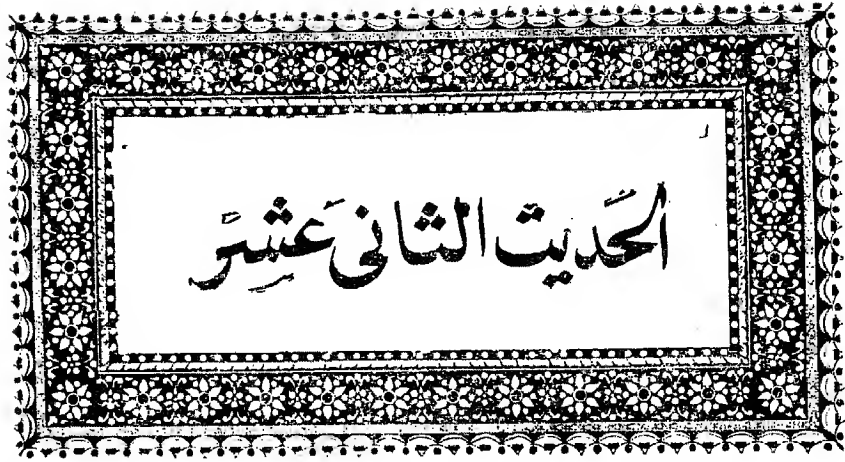 الحَديث الثانى عَشَر